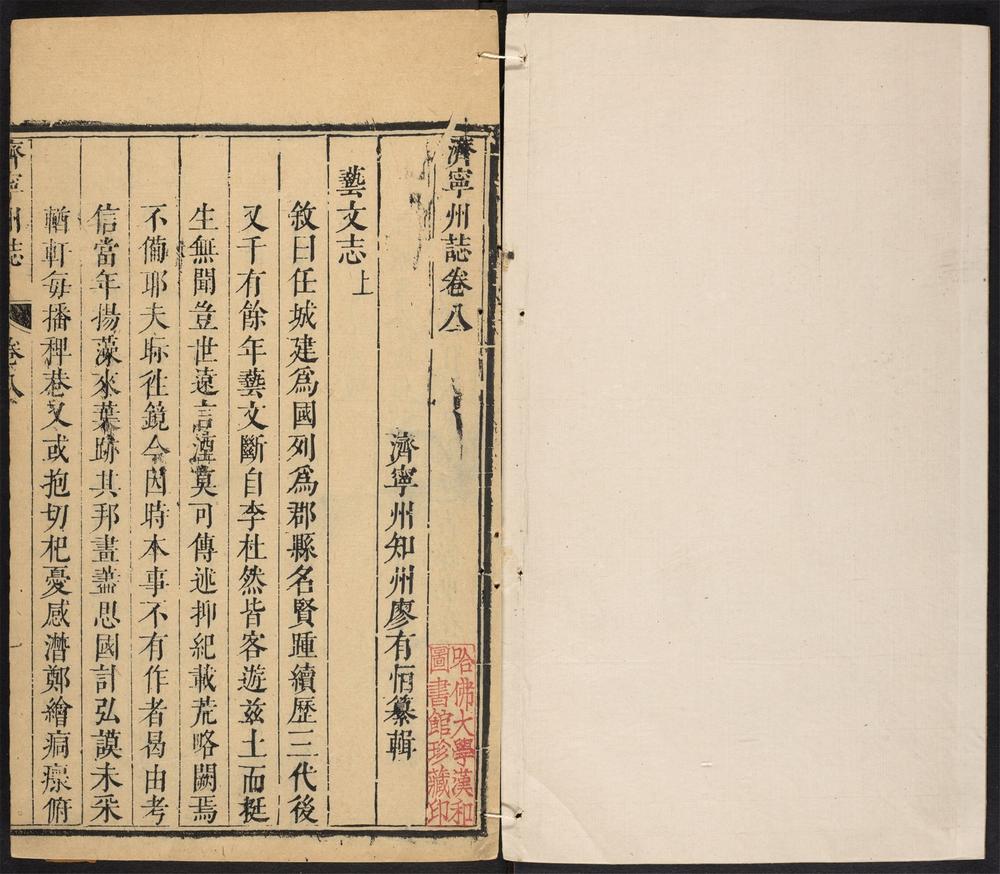 濟寧州誌卷八
濟寧州知州廖有恒纂輯
藝文志上
敘曰任城建爲國列爲郡縣名賢踵續歷三代後
又千有餘年藝文斷自李杜然皆客遊兹土而挺
生無聞豈世遠言湮莫可傳述抑紀載荒略闕焉
不備耶夫眎徃鏡今因時本事不有作者曷由考
信當年揚藻來葉跡其邦畫藎思國計弘謨未釆
輶軒每播稗巷又或抱切杞憂感濳鄭繪痌瘝俯
濟寧州誌
卷八
哈佛大學漢和
圖書館珍藏印